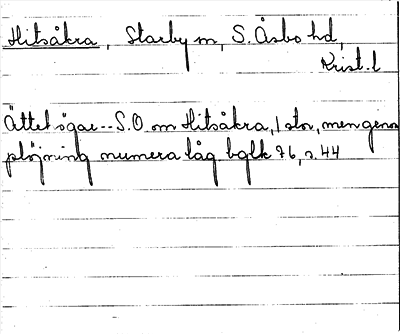 Hitsåkra, Starby m, S. Åsbo hd,
Krist. l
Ättehögar -- S.O om Hitsåkra, 1 stor, men genom
plöjning numera låg bglk 76, s. 44